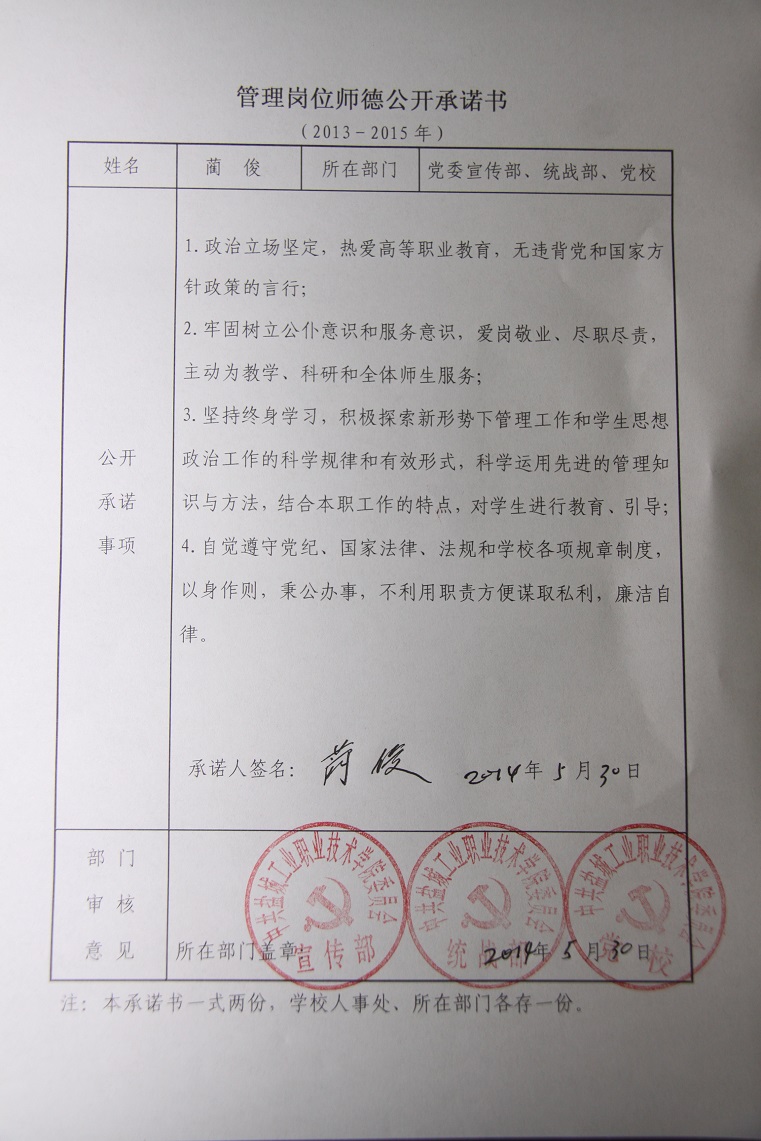 管理岗位师德公开承诺书
(2013-2015年)
姓名 蔺 俊 所在部门 党委宣传部、统战部、党校
1.政治立场坚定，热爱高等职业教育，无违背党和国家方
针政策的言行；
2.牢固树立公仆意识和服务意识，爱岗敬业、尽职尽责，
主动为教学、科研和全体师生服务；
3.坚持终身学习，积极探索新形势下管理工作和学生思想
政治工作的科学规律和有效形式，科学运用先进的管理知
识与方法，结合本职工作的特点，对学生进行教育、引导；
4.自觉遵守党纪、国家法律、法规和学校各项规章制度，
以身作则，秉公办事，不利用职责方便谋取私利，廉洁自
律。
公开
承诺
事项
承诺人签名： 蔺俊 2014年5月30日
部 门
审 核
意 见
所在部门盖章
2014年5月30日
中共盐城工业职业技术学院委员会
宣传部
中共盐城工业职业技术学院委员会
统战部
中共盐城工业职业技术学院委员会
党校
注：本承诺书一式两份，学校人事处、所在部门各存一份。